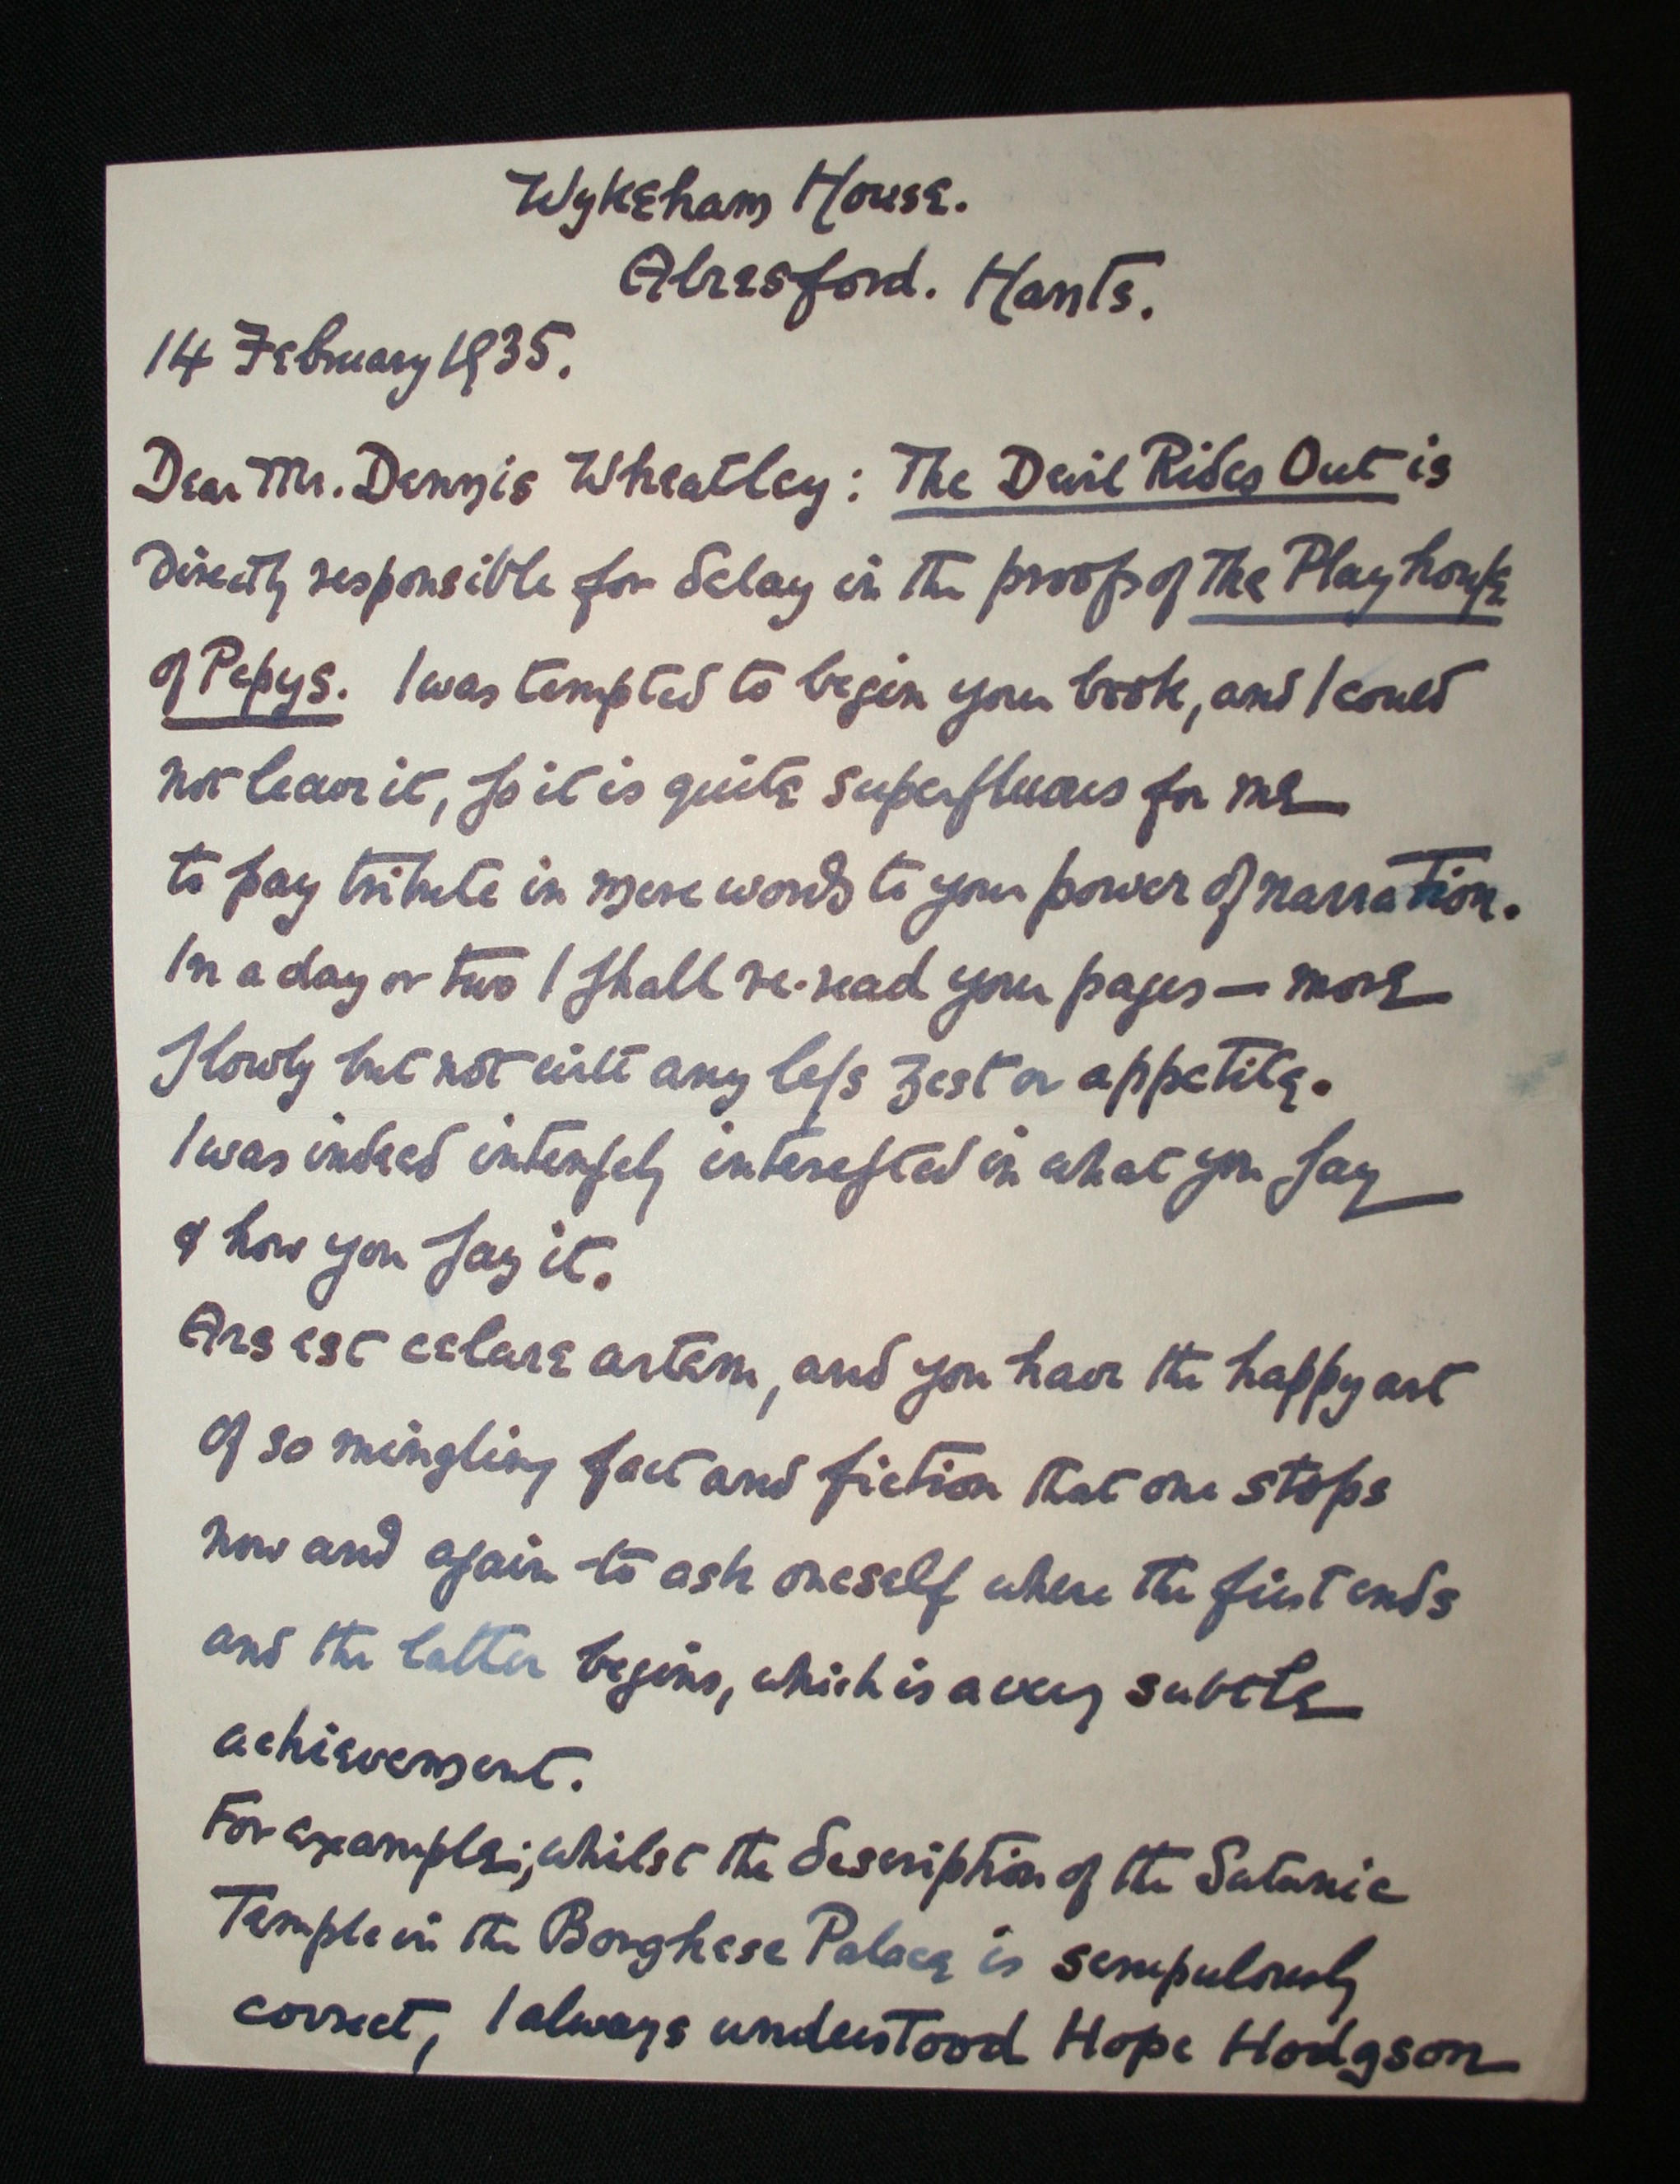 Wykeham House.
Alresford. Hants.
14 February 1935.
Dear Mr. Dennis Wheatley: The Devil Rides Out is
directly responsible for delay in the proofs of The Playhouse
of Pepys. I was tempted to begin your book, and I could
not leave it, so it is quite superfluous for me
to pay tribute in mere words to your power of narration.
In a day or two I shall re-read your pages — more
slowly but not with any less zest or appetite.
I was indeed intensely interested in what you say
& how you say it.
Ars est celare artem, and you have the happy art
of so mingling fact and fiction that one stops
now and again to ask oneself where the first ends
and the latter begins, which is a very subtle
achievement.
For example; whilst the description of the Satanic
Temple in the Borghese Palace is scrupulously
correct, I always understood Hope Hodgson